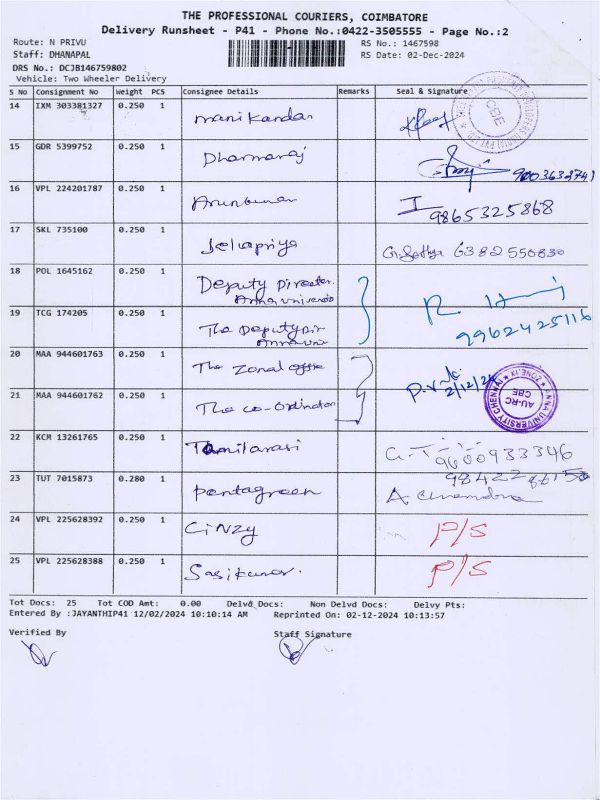 THE PROFESSIONAL COURIERS, COIMBATORE
Delivery Runsheet - P41 - Phone No.:0422-3505555 - Page No.:2
Route: N PRIVU
RS No.: 1467598
Staff: DHANAPAL
RS Date: 02-Dec-2024
DRS No.: DCJB146759802
Vehicle: Two Wheeler Delivery
S No Consignment No Weight PCS Consignee Details Remarks Seal & Signature
14 IXM 303381327 0.250 1 manikandan
15 GDR 5399752 0.250 1 Dharmaraj
16 VPL 224201787 0.250 1 Arunkumar 9865325868
17 SKL 735100 0.250 1 Jeliapriya 6382550830
18 POL 1645162 0.250 1 Deputy Director
Anna University
19 TCG 174205 0.250 1 The Deputy Dir 9962425116
Anna Uni
20 MAA 944601763 0.250 1 The Zonal office 2/12/24
ANNA UNIVERSITY CHENNAI ZONE-IX
AU-RC
CBE
21 MAA 944601762 0.250 1 The Co-ordinator
22 KCM 13261765 0.250 1 Tamilarasi 9600933346
23 TUT 7015873 0.280 1 Pentagreen A Chandra
24 VPL 225628392 0.250 1 CiNZy P/S
25 VPL 225628388 0.250 1 Sasikumar. P/S
Tot Docs: 25 Tot COD Amt: 0.00 Delvd Docs: Non Delvd Docs: Delvy Pts:
Entered By :JAYANTHIP41 12/02/2024 10:10:14 AM Reprinted On: 02-12-2024 10:13:57
Verified By Staff Signature